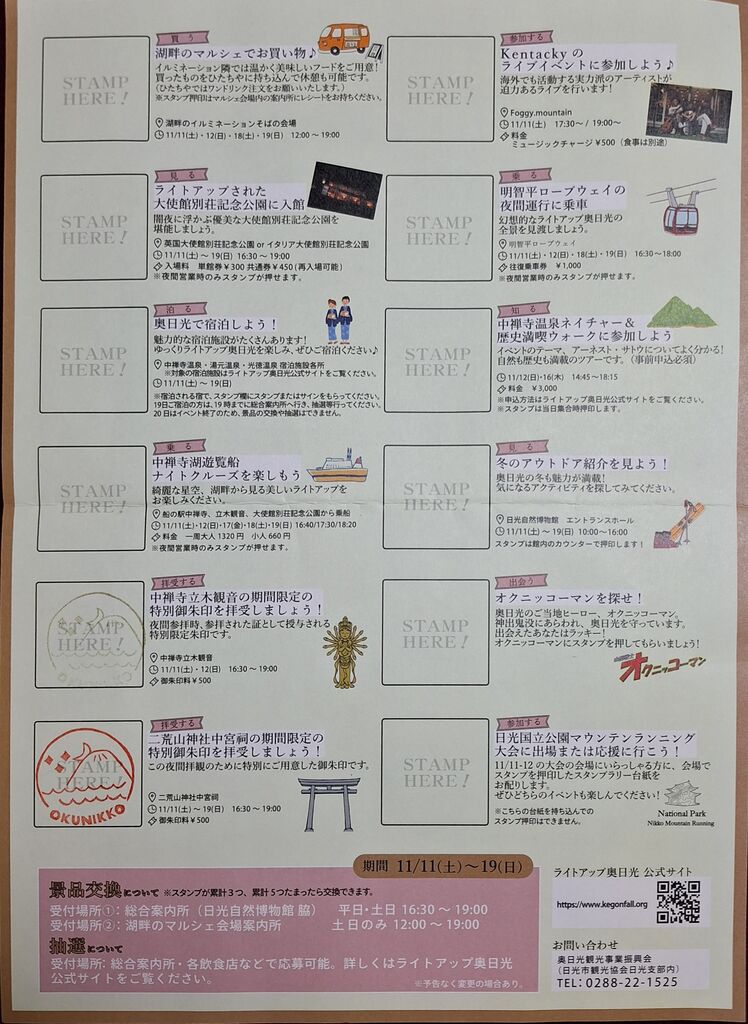 買う
湖畔のマルシェでお買い物♪
イルミネーション隣では温かく美味しいフードをご用意!
買ったものをひたちやに持ち込んで休憩も可能です。
(ひたちやではワンドリンク注文をお願いいたします。)
※スタンプ押印はマルシェ会場内の案内所にレシートをお持ちください。
湖畔のイルミネーションそばの会場
11/11(土)・12(日)・18(土)・19(日) 12:00 ~ 19:00
STAMP
HERE!
参加する
Kentacky の
ライブイベントに参加しよう♪
海外でも活動する実力派のアーティストが
迫力あるライブを行います!
Foggy.mountain
11/11(土) 17:30~ / 19:00~
料金
ミュージックチャージ ¥500 (食事は別途)
STAMP
HERE!
見る
ライトアップされた
大使館別荘記念公園に入館
闇夜に浮かぶ優美な大使館別荘記念公園を
堪能しましょう。
英国大使館別荘記念公園 or イタリア大使館別荘記念公園
11/11(土) ~ 19(日) 16:30 ~ 19:00
入場料 単館券 ¥300 共通券 ¥450 (再入場可能)
※夜間営業時のみスタンプが押せます。
STAMP
HERE!
乗る
明智平ロープウェイの
夜間運行に乗車
幻想的なライトアップ奥日光の
全景を見渡しましょう。
明智平ロープウェイ
11/11(土)・12(日)・18(土)・19(日) 16:30~18:00
往復乗車券 ¥1,000
※夜間営業時のみスタンプが押せます。
STAMP
HERE!
泊る
奥日光で宿泊しよう!
魅力的な宿泊施設がたくさんあります!
ゆっくりライトアップ奥日光を楽しみ、ぜひご宿泊ください♪
中禅寺温泉・湯元温泉・光徳温泉 宿泊施設各所
※対象の宿泊施設はライトアップ奥日光公式サイトをご覧ください。
11/11(土) ~ 19(日)
※宿泊される宿で、スタンプ欄にスタンプまたはサインをもらってください。
19日ご宿泊の方は、19 時までに総合案内所へ行き、抽選等行ってください。
20 日はイベント終了のため、景品の交換や抽選はできません。
STAMP
HERE!
知る
中禅寺温泉ネイチャー&
歴史満喫ウォークに参加しよう
イベントのテーマ、アーネスト・サトウについてよく分かる!
自然も歴史も満載のツアーです。(事前申込必須)
11/12(日)・16(木) 14:45~18:15
料金 ¥3,000
※申込方法はライトアップ奥日光公式サイトをご覧ください。
※スタンプは当日集合時押印します。
STAMP
HERE!
乗る
中禅寺湖遊覧船
ナイトクルーズを楽しもう
綺麗な星空、湖畔から見る美しいライトアップを
お楽しみください。
船の駅中禅寺、立木観音、大使館別荘記念公園から乗船
11/11(土)・12(日)・17(金)・18(土)・19(日) 16:40/17:30/18:20
料金 一周大人 1320 円 小人 660 円
※夜間営業時のみスタンプが押せます。
STAMP
HERE!
見る
冬のアウトドア紹介を見よう!
奥日光の冬も魅力が満載!
気になるアクティビティを探してみてください。
日光自然博物館 エントランスホール
11/11(土) ~ 19(日) 10:00~16:00
スタンプは館内のカウンターで押印します!
STAMP
HERE!
拝受する
中禅寺立木観音の期間限定の
特別御朱印を拝受しましょう!
夜間参拝時、参拝された証として授与される
特別限定朱印です。
中禅寺立木観音
11/11(土)・12(日) 16:30 ~ 19:00
御朱印料 ¥500
STAMP
HERE!
出会う
オクニッコーマンを探せ!
奥日光のご当地ヒーロー、オクニッコーマン。
神出鬼没にあらわれ、奥日光を守っています。
出会えたあなたはラッキー!
オクニッコーマンにスタンプを押してもらいましょう!
オクニッコーマン
STAMP
HERE!
拝受する
二荒山神社中宮祠の期間限定の
特別御朱印を拝受しましょう!
この夜間拝観のために特別にご用意した御朱印です。
二荒山神社中宮祠
11/11(土) ~ 19(日) 16:30 ~ 19:00
御朱印料 ¥500
STAMP
HERE!
OKUNIKKO
参加する
日光国立公園マウンテンランニング
大会に出場または応援に行こう!
11/11-12 の大会の会場にいらっしゃる方に、会場で
スタンプを押印したスタンプラリー台紙を
お配りします。
ぜひどちらのイベントも楽しんでください!
※こちらの台紙を持ち込んでの
スタンプ押印はできません。
National Park
Nikko Mountain Running
STAMP
HERE!
期間 11/11(土)~19(日)
景品交換について ※スタンプが累計3つ、累計5つたまったら交換できます。
受付場所①:総合案内所(日光自然博物館 脇) 平日・土日 16:30 ~ 19:00
受付場所②:湖畔のマルシェ会場案内所 土日のみ 12:00 ~ 19:00
抽選について
受付場所:総合案内所・各飲食店などで応募可能。詳しくはライトアップ奥日光
公式サイトをご覧ください。
※予告なく変更の場合あり。
ライトアップ奥日光 公式サイト
https://www.kegonfall.org
お問い合わせ
奥日光観光事業振興会
(日光市観光協会日光支部内)
TEL:0288-22-1525